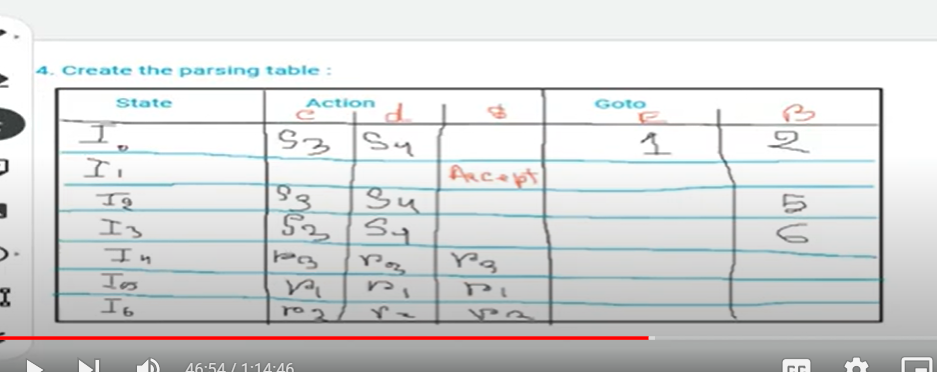 4. Create the parsing table :
State Action Goto
c d $ E B
I0 S3 S4 1 2
I1 Accept
I2 S3 S4 5
I3 S3 S4 6
I4 r3 r3 r3
I5 r1 r1 r1
I6 r2 r2 r2
46:54 / 1:14:46
CC